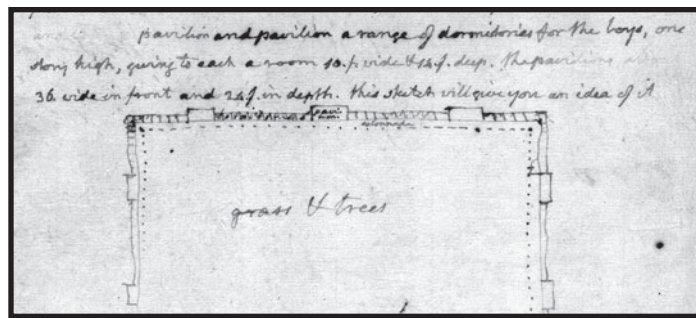 pavilion and pavilion a range of dormitories for the boys, one
story high, giving to each a room 10. f. wide & 14. f. deep. the pavilions
36. wide in front and 24. f. in depth. this sketch will give you an idea of it
pavilion
grass & trees